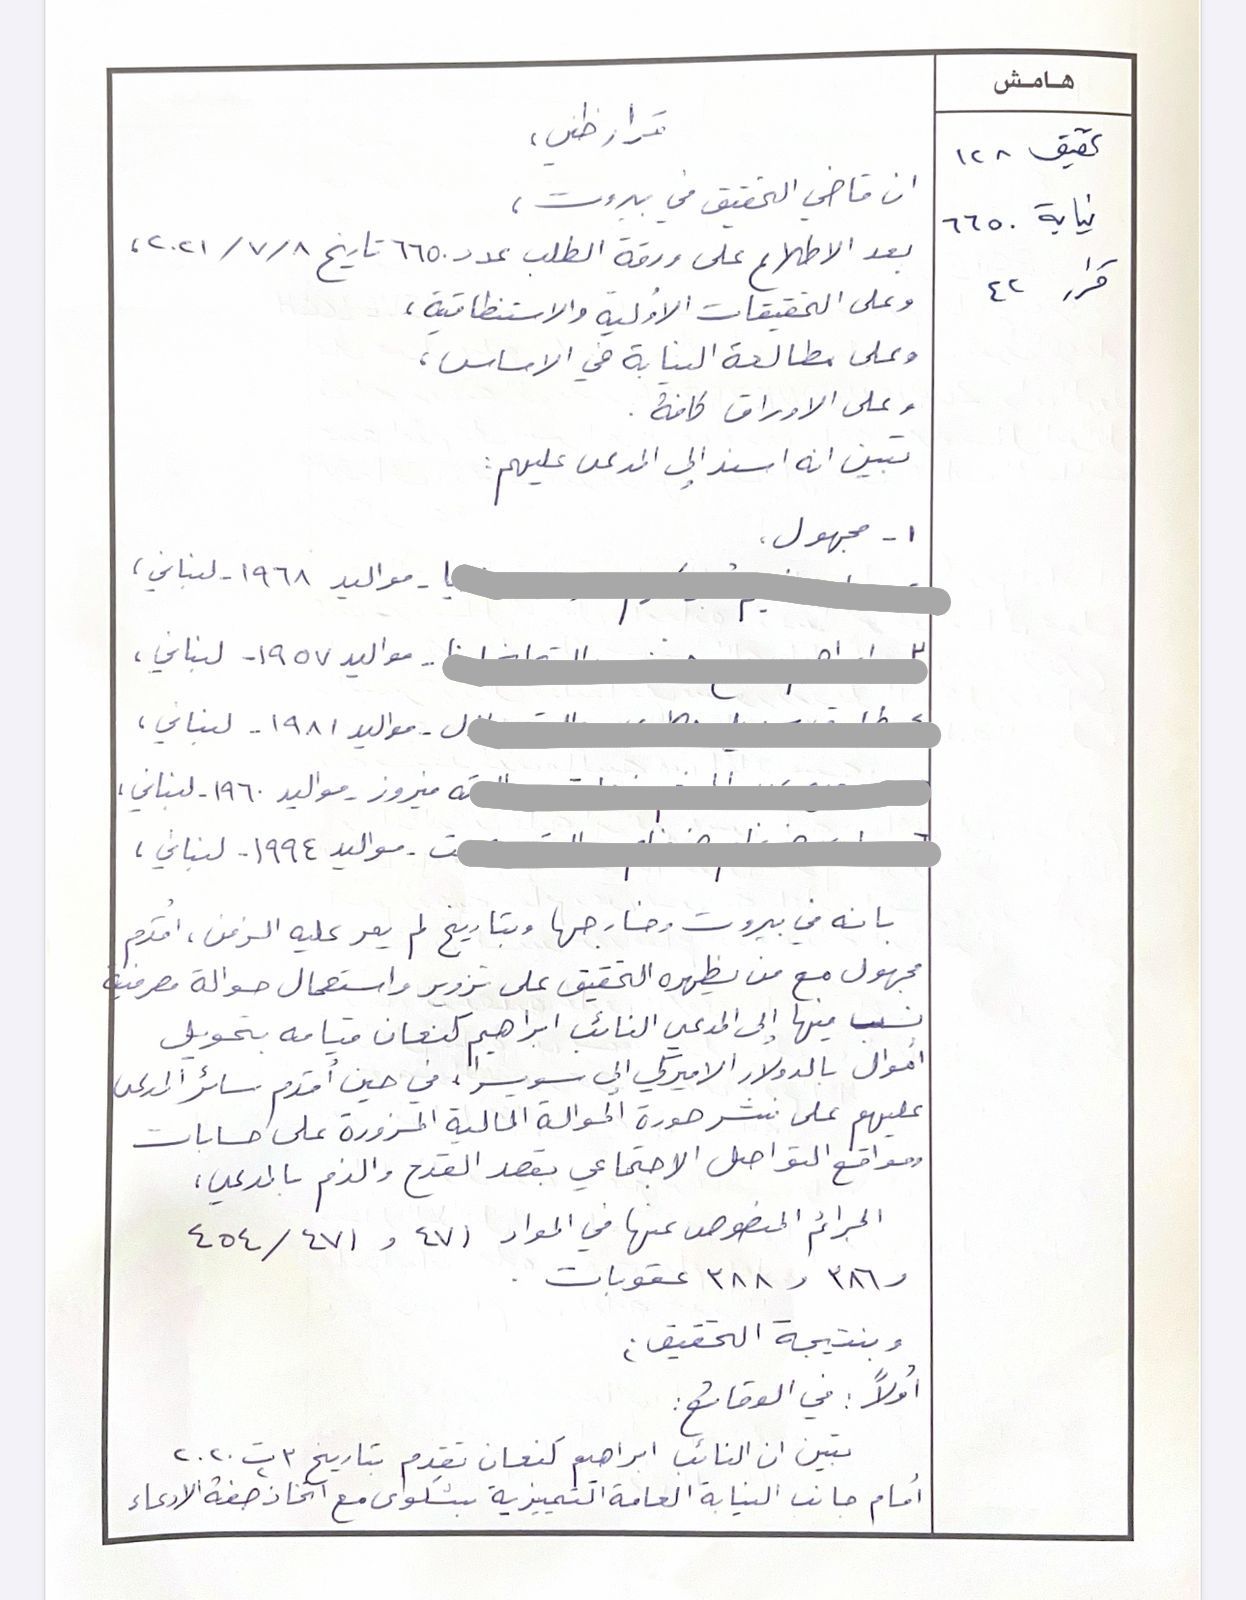 هامش
تحقيق ١٢٨
نيابة ٦٦٥٠
قرار ٤٢
قرار ظني،
ان قاضي التحقيق في بيروت،
بعد الاطلاع على ورقة الطلب عدد ٦٦٥٠ تاريخ ٨/٧/٢٠٢١،
وعلى التحقيقات الأولية والاستنطاقية،
وعلى مطالعة النيابة في الاساس،
وعلى الاوراق كافة.
تبين انه اسند إلى المدعى عليهم:
١- مجهول،
- مواليد ١٩٦٨ - لبناني،
٣ - مواليد ١٩٥٧ - لبناني،
- مواليد ١٩٨١ - لبناني،
فيروز - مواليد ١٩٦٠ - لبناني،
٦ - مواليد ١٩٩٤ - لبناني،
بانه في بيروت وخارجها وبتاريخ لم يمر عليه الزمن، أقدم
مجهول مع من يظهره التحقيق على تزوير واستعمال حوالة مصرفية
نسب فيها إلى المدعي النائب ابراهيم كنعان قيامه بتحويل
أموال بالدولار الاميركي إلى سويسرا، في حين أقدم سائر المدعى
عليهم على نشر صورة الحوالة المالية المزورة على حسابات
ومواقع التواصل الاجتماعي بقصد القدح والذم بالمدعي،
الجرائم المنصوص عنها في المواد ٤٧١ و ٤٧١/٤٥٤
و ٣٨٦ و ٣٨٨ عقوبات.
وبنتيجة التحقيق:
أولاً: في الوقائع:
تبين ان النائب ابراهيم كنعان تقدم بتاريخ ٣ ت٢ ٢٠٢٠
أمام جانب النيابة العامة التمييزية بشكوى مع اتخاذ صفة الادعاء